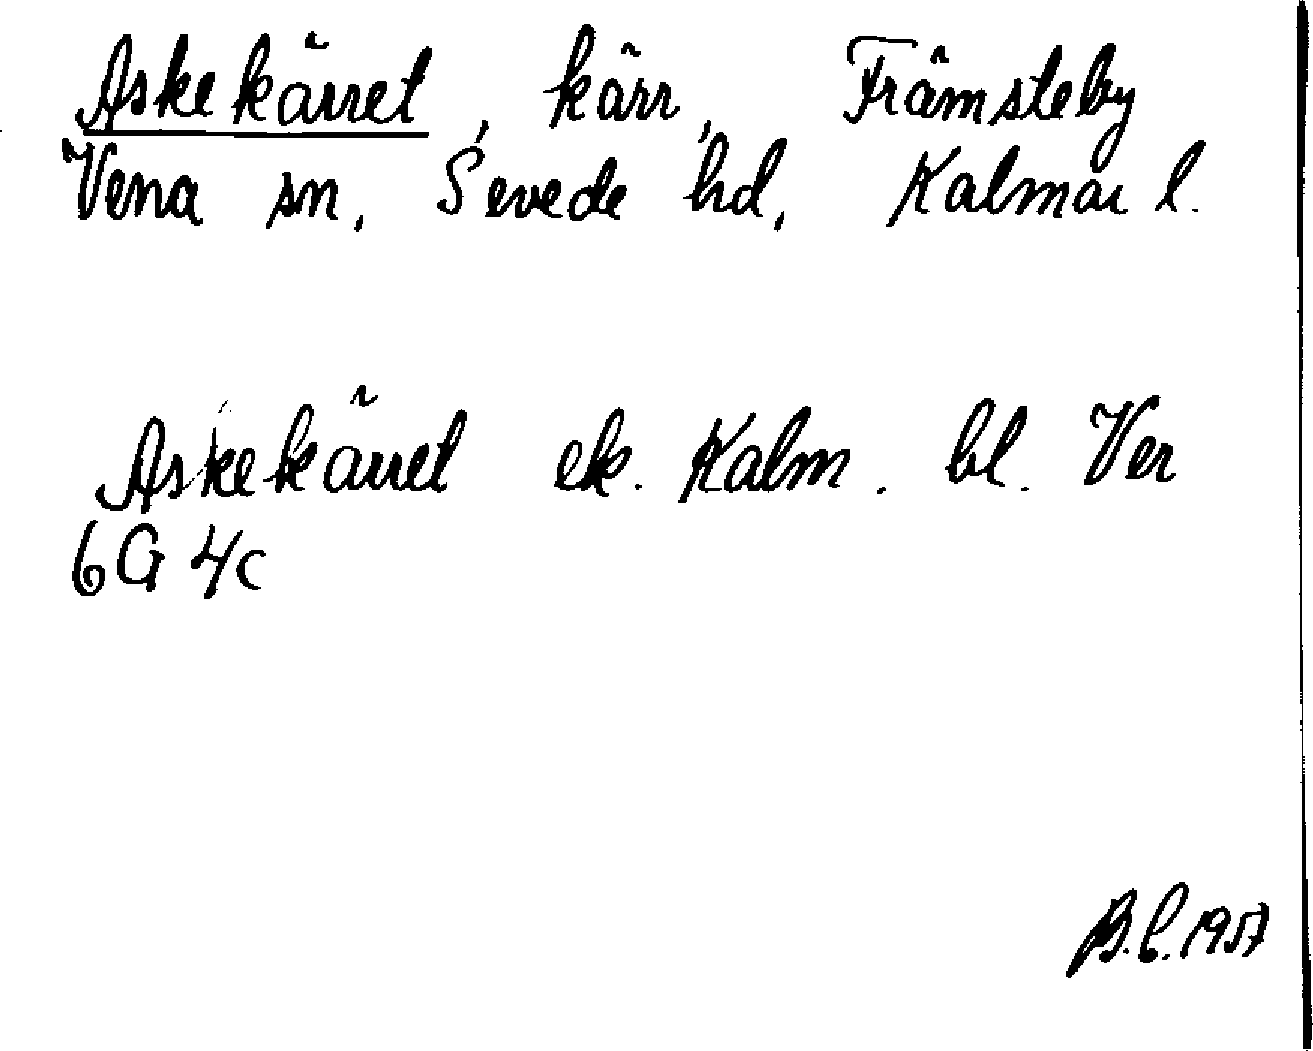 Askekärret, kärr, Främsteby
Vena sn, Sevede hd, Kalmar l.
Askekärret ek. Kalm. bl. Ver
6G 4c
B.C. 1957